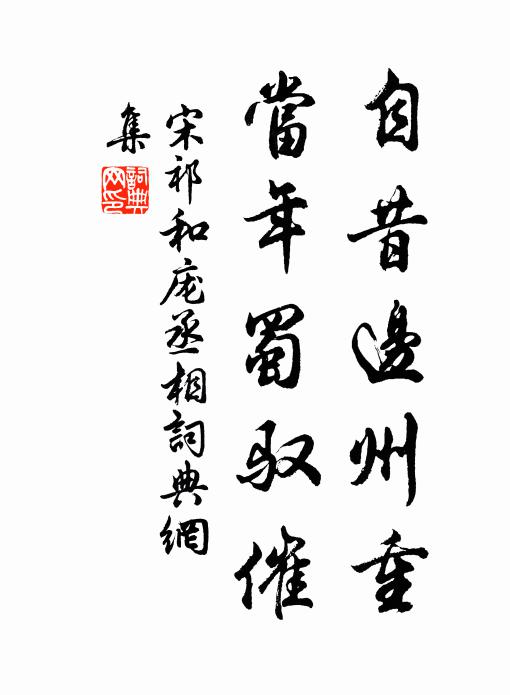 自昔邊州重
當年蜀驭催
宋祁和庞丞相詞典網
集
詞典网印